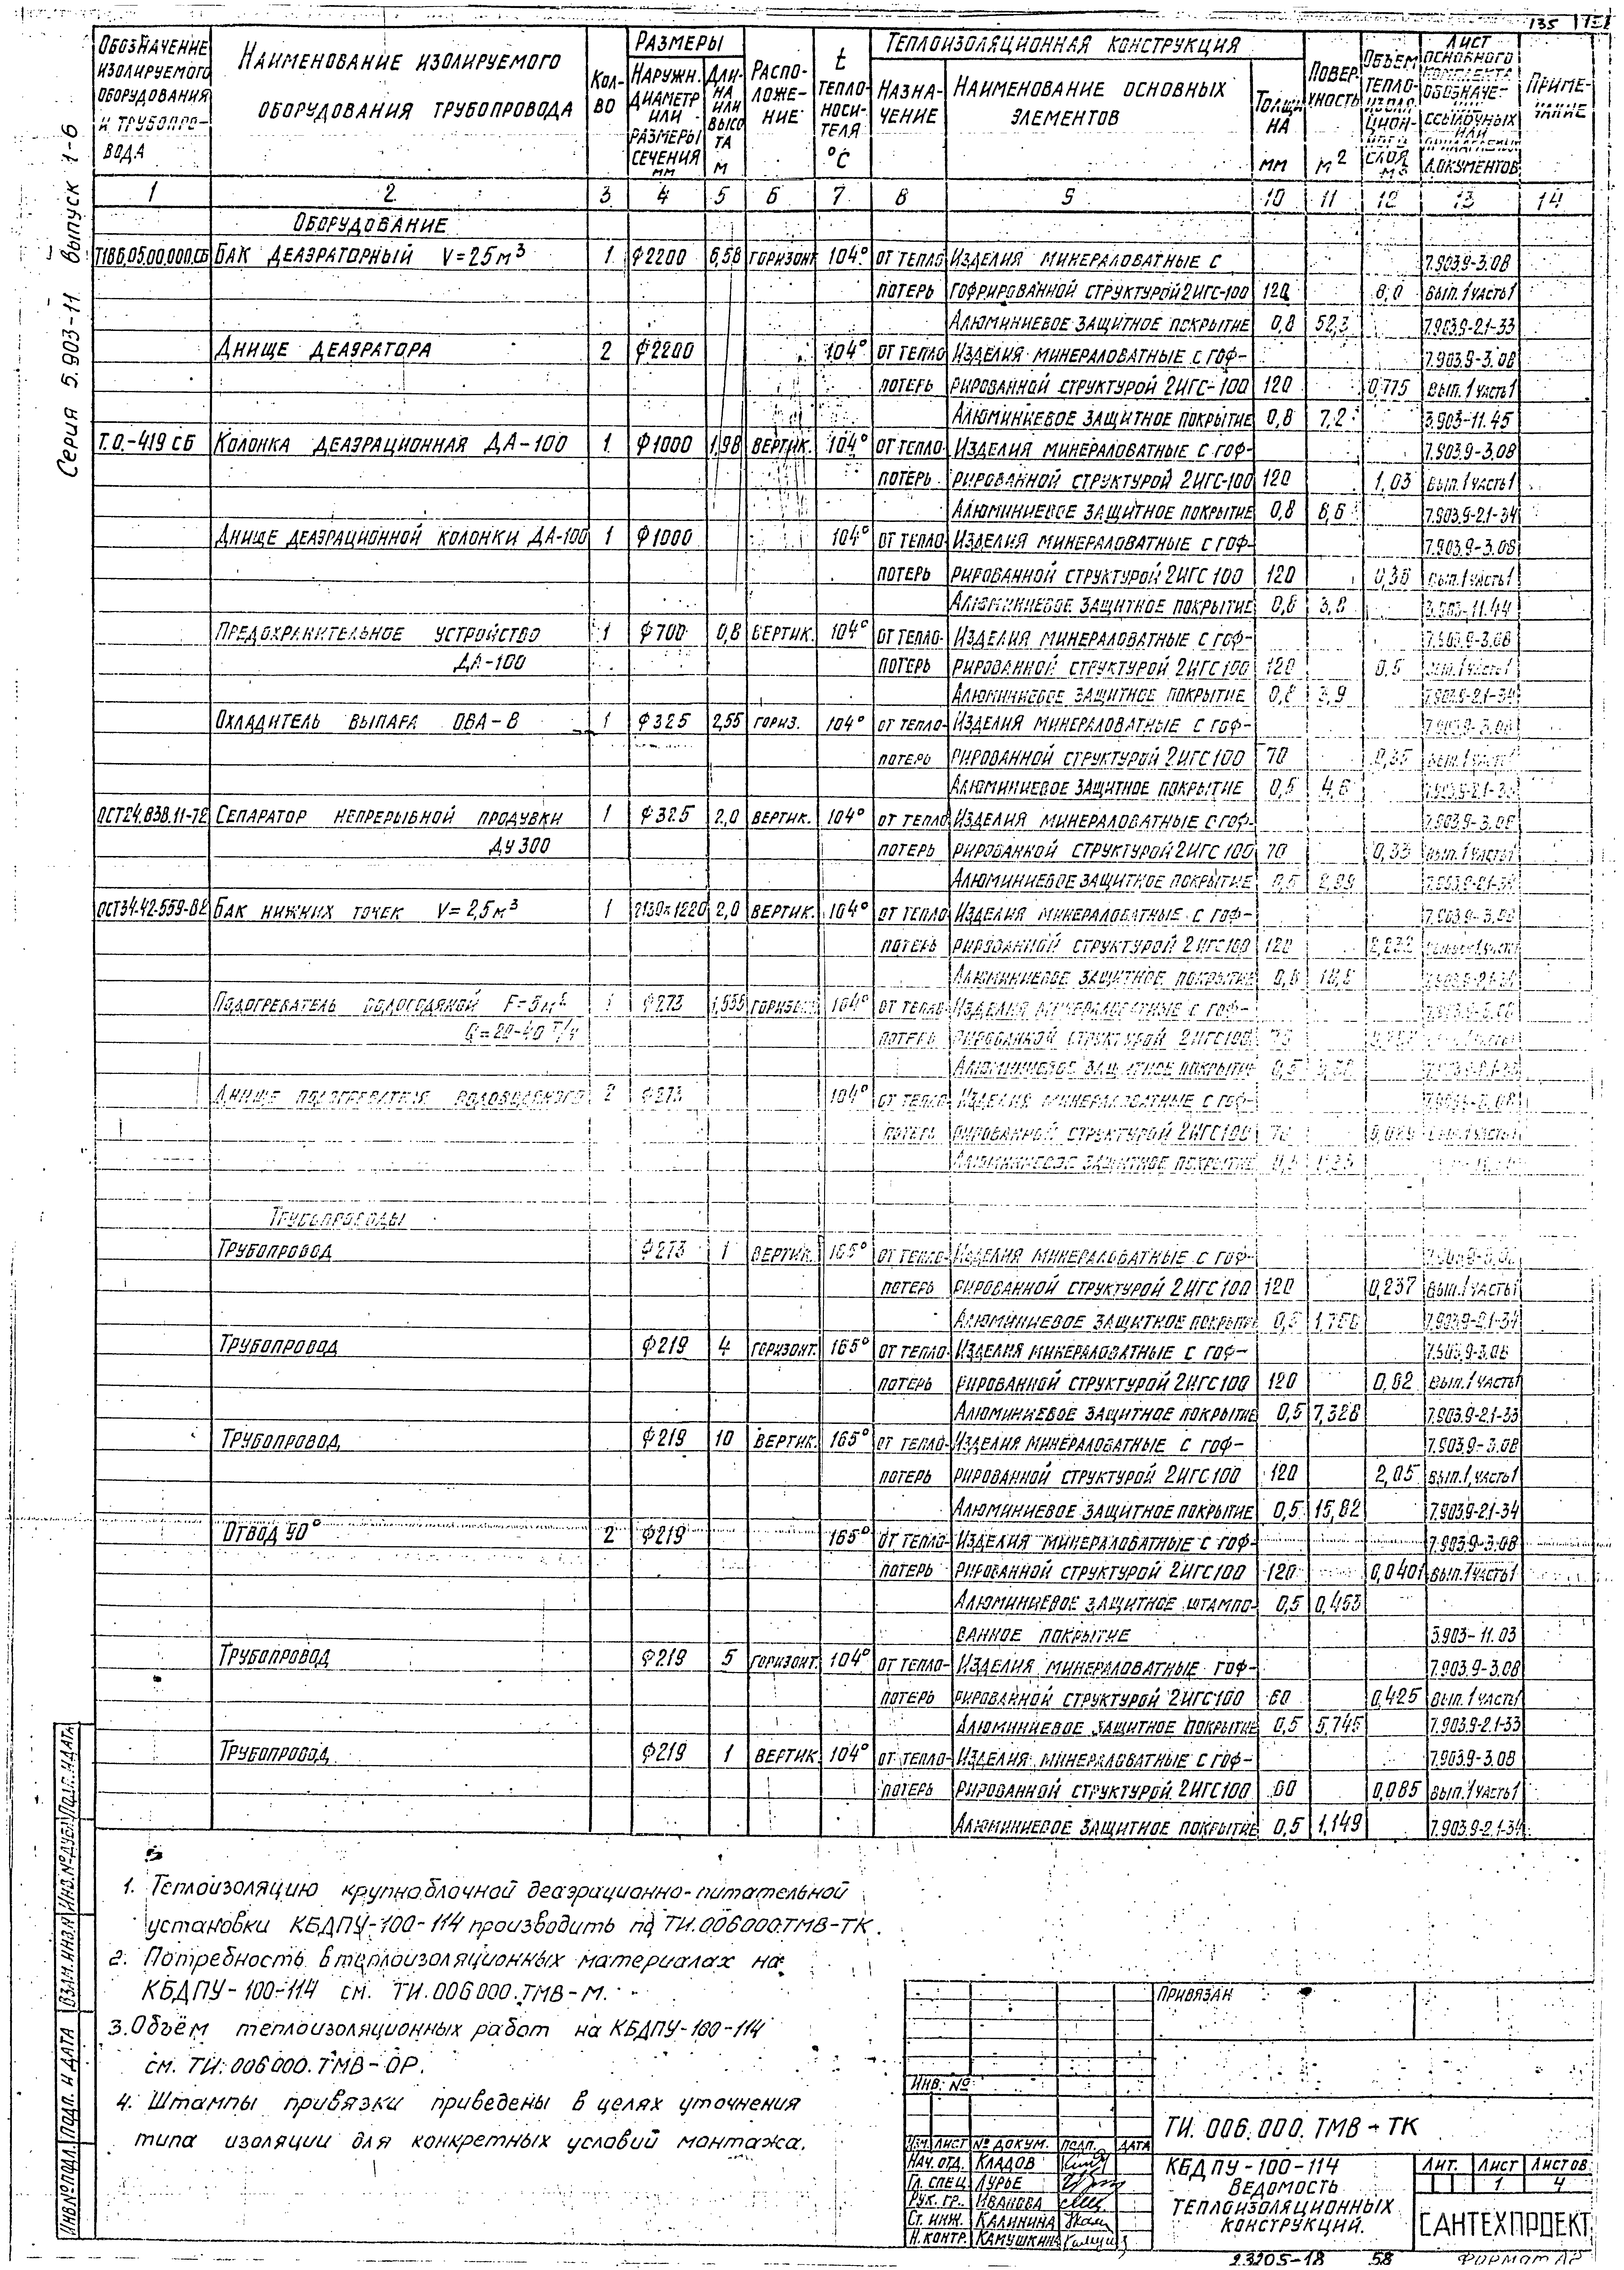 135
Серия 5.903-11 выпуск 1-6
Обозначение изолируемого оборудования и трубопровода | Наименование изолируемого оборудования трубопровода | Кол-во | Размеры | Наружн. диаметр или размеры сечения мм | Длина или высота м | Расположение | t теплоносителя °С | Теплоизоляционная конструкция | Назначение | Наименование основных элементов | Толщина мм | Поверхность м² | Объем теплоизоляционного слоя м³ | Лист основного комплекта обозначение ссылочных или прилагаемых документов | Примечание
1 2 3 4 5 6 7 8 9 10 11 12 13 14
Оборудование
Т186.05.00.000.СБ Бак деаэраторный V=25м³ 1 ф2200 6,58 горизонт 104° от тепло Изделия минераловатные с 7.903.9-3.08
потерь гофрированной структурой 2ИГС-100 120 6,0 вып.1 часть1
Алюминиевое защитное покрытие 0,8 52,3 7.903.9-2.1-33
Днище деаэратора 2 ф2200 104° от тепло Изделия минераловатные с гоф- 7.903.9-3.08
потерь рированной структурой 2ИГС-100 120 0,775 вып.1 часть1
Алюминиевое защитное покрытие 0,8 7,2 3.903-11.45
Т.О.-419 СБ Колонка деаэрационная ДА-100 1 ф1000 1,98 вертик. 104° от тепло- Изделия минераловатные с гоф- 7.903.9-3.08
потерь рированной структурой 2ИГС-100 120 1,03 вып.1 часть1
Алюминиевое защитное покрытие 0,8 8,6 7.903.9-2.1-34
Днище деаэрационной колонки ДА-100 1 ф1000 104° от тепло Изделия минераловатные с гоф- 7.903.9-3.08
потерь рированной структурой 2ИГС 100 120 0,36 вып.1 часть1
Алюминиевое защитное покрытие 0,8 3,8 3.903-11.44
Предохранительное устройство 1 ф700 0,8 вертик. 104° от тепло- Изделия минераловатные с гоф- 7.903.9-3.08
ДА-100 потерь рированной структурой 2ИГС 100 120 0,5 вып.1 часть1
Алюминиевое защитное покрытие 0,8 3,9 7.903.9-2.1-34
Охладитель выпара ОВА-8 1 ф325 2,55 гориз. 104° от тепло- Изделия минераловатные с гоф- 7.903.9-3.08
потерь рированной структурой 2ИГС 100 70 0,35 вып.1 часть1
Алюминиевое защитное покрытие 0,5 4,6 7.903.9-2.1-33
ОСТ24.838.11-72 Сепаратор непрерывной продувки 1 ф325 2,0 вертик. 104° от тепло Изделия минераловатные с гоф- 7.903.9-3.08
Ду 300 потерь рированной структурой 2ИГС 100 70 0,33 вып.1 часть1
Алюминиевое защитное покрытие 0,5 7.903.9-2.1-34
ОСТ34-42-559-82 Бак нижних точек V=2,5м³ 1 2130х1220 2,0 вертик. 104° от тепло Изделия минераловатные с гоф- 7.903.9-3.08
потерь рированной структурой 2ИГС 100 120 вып.1 часть1
Алюминиевое защитное покрытие 0,8 18,8
Подогреватель водоводяной 1 ф273 1,535 104° от тепло- Изделия минераловатные с гоф-
G=20-40 т/ч потерь рированной структурой 2ИГС 100
Алюминиевое защитное покрытие 0,5
Днище подогревателя водоводяного 2 ф273 104° от тепло Изделия минераловатные с гоф- 7.903.9-3.08
потерь рированной структурой 2ИГС 100 вып.1 часть1
Алюминиевое защитное покрытие 0,5
Трубопроводы
Трубопровод ф273 1 вертик. 165° от тепло- Изделия минераловатные с гоф-
потерь рированной структурой 2ИГС 100 120 0,237 вып.1 часть1
Алюминиевое защитное покрытие 0,5 7.903.9-2.1-34
Трубопровод ф219 4 горизонт. 165° от тепло- Изделия минераловатные с гоф- 7.903.9-3.08
потерь рированной структурой 2ИГС 100 120 0,82 вып.1 часть1
Алюминиевое защитное покрытие 0,5 7,328 7.903.9-2.1-33
Трубопровод ф219 10 вертик. 165° от тепло- Изделия минераловатные с гоф- 7.903.9-3.08
потерь рированной структурой 2ИГС 100 120 2,05 вып.1, часть1
Алюминиевое защитное покрытие 0,5 15,82 7.903.9-2.1-34
Отвод 90° 2 ф219 165° от тепло- Изделия минераловатные с гоф- 7.903.9-3.08
потерь рированной структурой 2ИГС 100 120 0,0401 вып.1 часть1
Алюминиевое защитное штампо- 0,5 0,453
ванное покрытие 3.903-11.03
Трубопровод ф219 5 горизонт. 104° от тепло- Изделия минераловатные гоф- 7.903.9-3.08
потерь рированной структурой 2ИГС 100 60 0,425 вып.1 часть1
Алюминиевое защитное покрытие 0,5 5,745 7.903.9-2.1-33
Трубопровод ф219 1 вертик 104° от тепло- Изделия минераловатные с гоф- 7.903.9-3.08
потерь рированной структурой 2ИГС 100 60 0,085 вып.1 часть1
Алюминиевое защитное покрытие 0,5 1,149 7.903.9-2.1-34
1. Теплоизоляцию крупноблочной деаэрационно-питательной
установки КБДПУ-100-114 производить по ТИ.006000.ТМВ-ТК.
2. Потребность в теплоизоляционных материалах на
КБДПУ-100-114 см. ТИ.006000.ТМВ-М.
3. Объём теплоизоляционных работ на КБДПУ-100-114
см. ТИ.006000.ТМВ-ОР.
4. Штампы привязки приведены в целях уточнения
типа изоляции для конкретных условий монтажа.
Инв.№ подл. Подп. и дата Взам. инв.№ Инв.№ дубл. Подп. и дата
Привязан
Инв. №
ТИ. 006.000. ТМВ-ТК
Изм. Лист № докум. Подп. Дата
Нач. отд. Кладов
Гл. спец. Лурье
Рук. гр. Иванова
Ст. инж. Калинина
Н. контр. Камушкина
КБДПУ-100-114
Ведомость
теплоизоляционных
конструкций.
Лит. Лист Листов
1 4
САНТЕХПРОЕКТ
23205-18 58 Формат А2